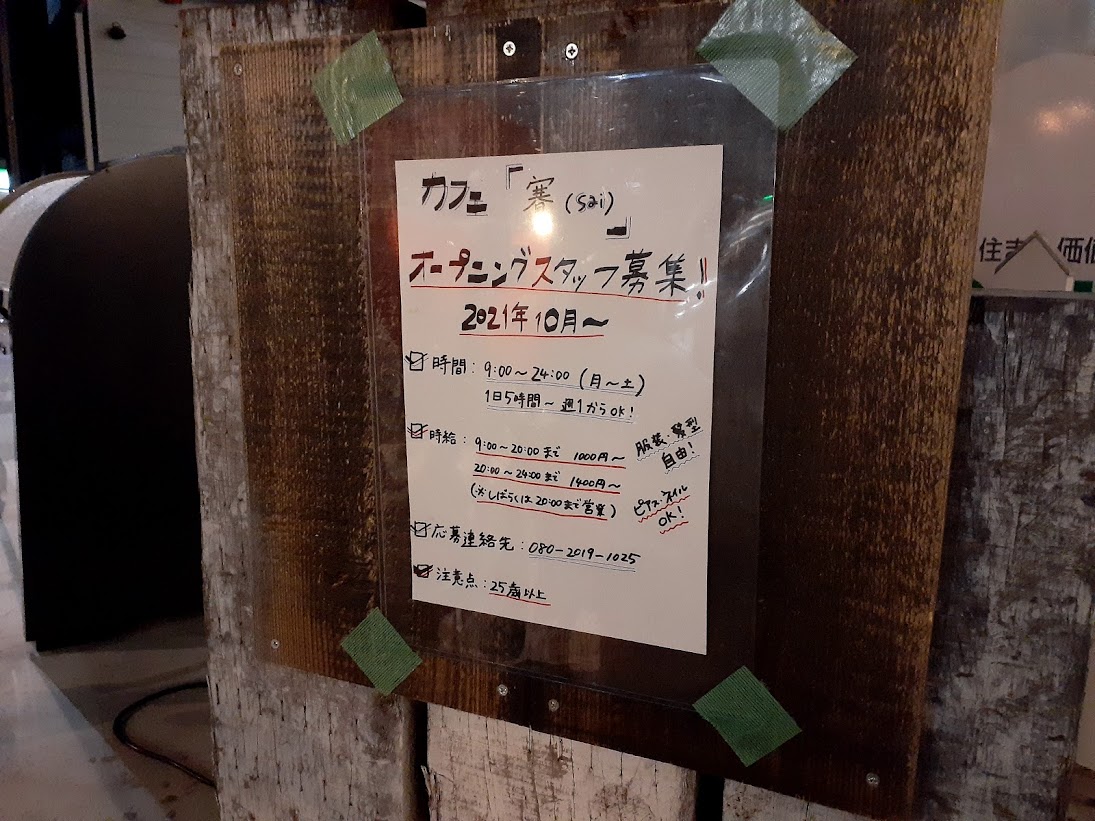 カフェ「審(sai)」
オープニングスタッフ募集!
2021年10月～
時間：9:00～24:00(月～土)
1日5時間～ 週1からOK!
時給：9:00～20:00まで 1000円～
20:00～24:00まで 1400円～
(※しばらくは20:00まで営業)
服装・髪型
自由!
ピアス・ネイル
OK!
応募連絡先：080-2019-1025
注意点：25歳以上